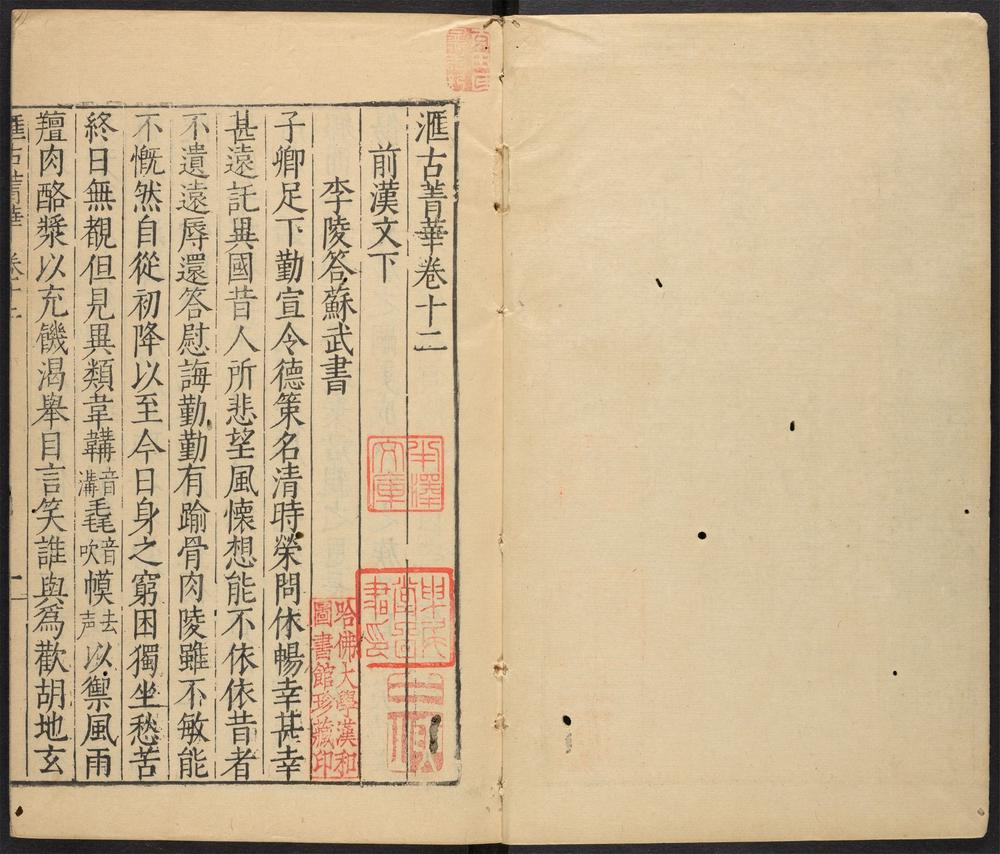 滙古菁華卷十二
前漢文下
李陵答蘇武書
子卿足下勤宣令德策名清時榮問休暢幸甚幸
甚遠託異國昔人所悲望風懷想能不依依昔者
不遺遠辱還答慰誨勤勤有踰骨肉陵雖不敏能
不慨然自從初降以至今日身之窮困獨坐愁苦
終日無覩但見異類韋韝音溝毳音吹幙去声以禦風雨
羶肉酪漿以充饑渴舉目言笑誰與爲歡胡地玄
滙古菁華 卷十二 一
半澤文庫
哈佛大學漢和圖書館珍藏印